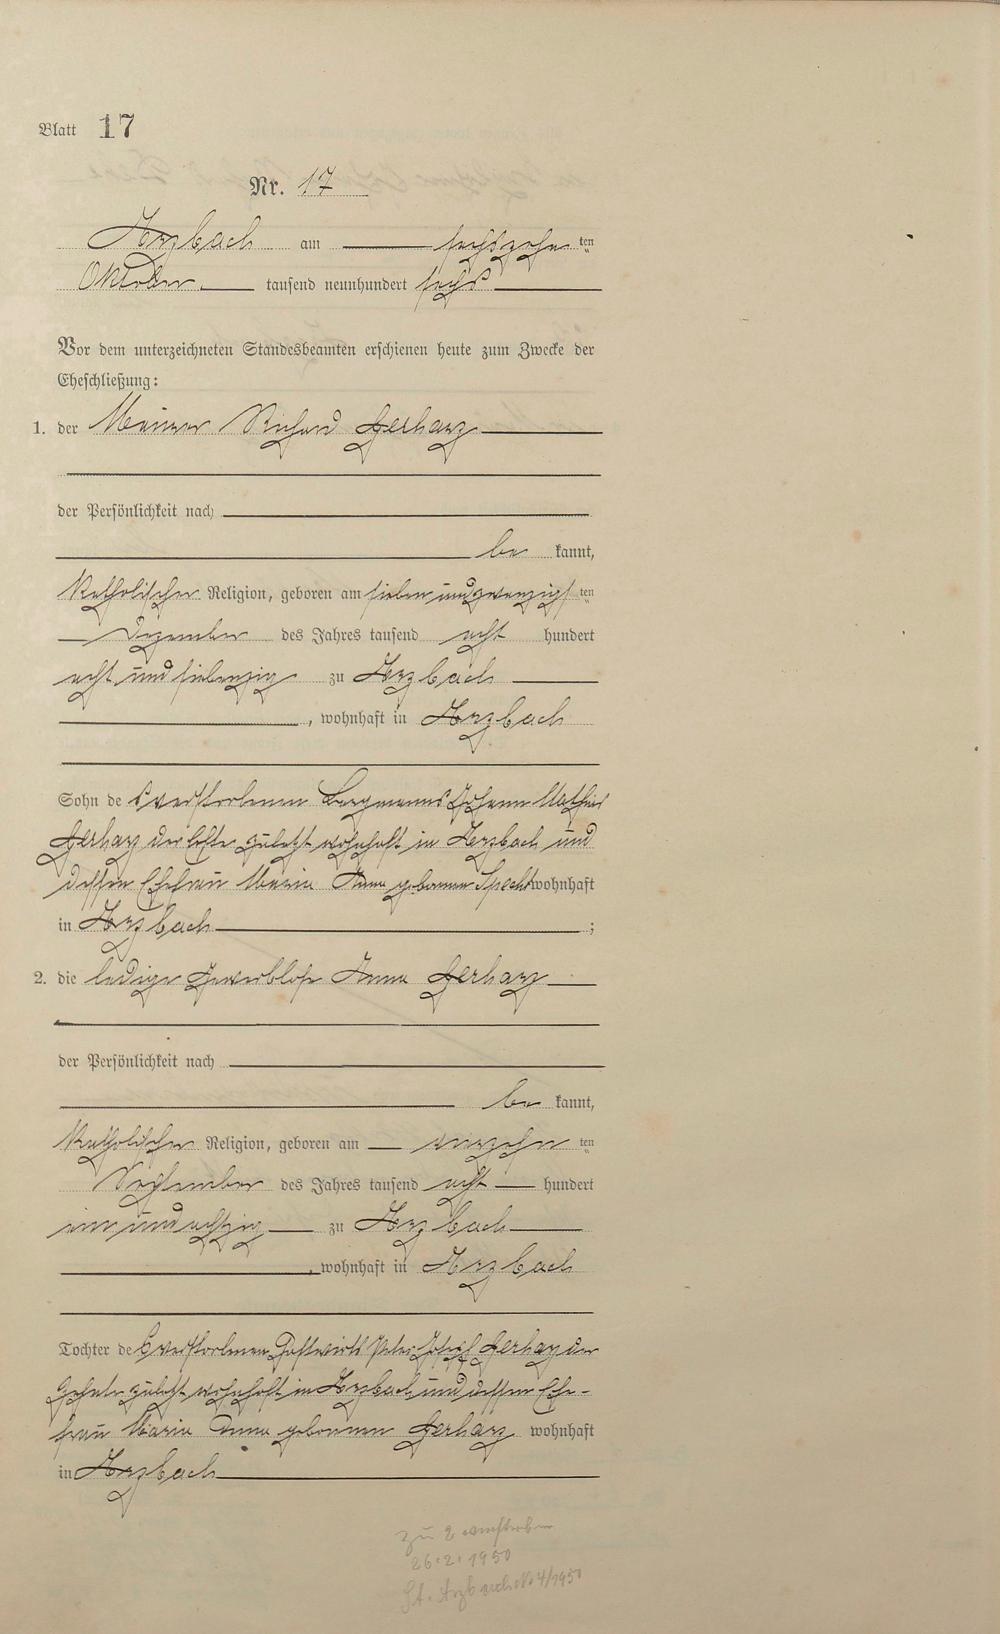 Blatt 17
Nr. 17
Arzbach am sechszehn ten
Oktober tausend neunhundert sechs
Vor dem unterzeichneten Standesbeamten erschienen heute zum Zwecke der
Eheschließung:
1. der Maurer Richard Gerharz
der Persönlichkeit nach
be kannt,
katholischer Religion, geboren am sieben und zwanzigs ten
Dezember des Jahres tausend acht hundert
acht und siebenzig zu Arzbach
, wohnhaft in Arzbach
Sohn de s verstorbenen Bergmanns Johann Mathias
Gerharz der Erste zuletzt wohnhaft in Arzbach und
dessen Ehefrau Maria Anna geborenen Specht wohnhaft
in Arzbach ;
2. die ledige Gewerblose Anna Gerharz
der Persönlichkeit nach
be kannt,
katholischer Religion, geboren am vierzehn ten
September des Jahres tausend acht hundert
ein und achtzig zu Arzbach
, wohnhaft in Arzbach
Tochter de s verstorbenen Gastwirts Peter Josef Gerharz der
zuletzt wohnhaft in Arzbach und dessen Ehe-
frau Maria Anna geborenen Gerharz wohnhaft
in Arzbach
zu 2 verstorben
26.2.1950
St. A. Arzbach No 4/1950